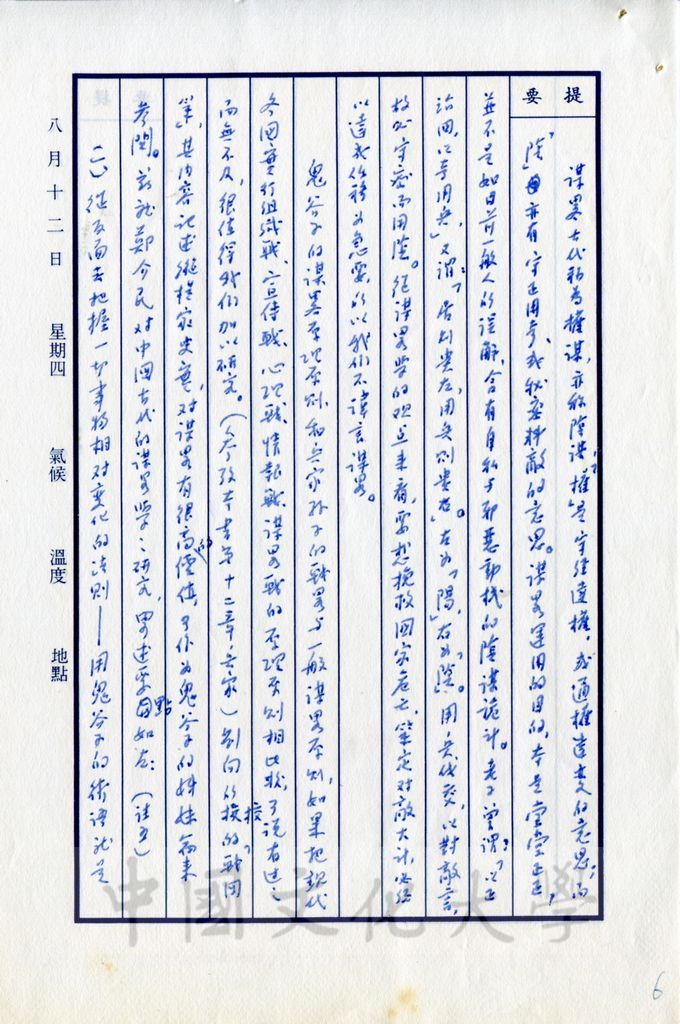 提要
謀畧古代移為權謀，亦称陰謀，「權」是守経達權，或通權達变的意思；而
「陰」亦有守正用奇，或秘密料敵的意思。謀畧運用的目的，本是堂堂正正，
並不是如目前一般人的誤解，含有自私与邪惡動機的陰謀詭計。老子曾謂：「以正
治国，以奇用兵」又謂：「居則貴左，用兵則貴右」左为「陽」右为「陰」。用兵伐交，以對敵言，
故必守密而用陰。従謀畧学的观点来看，要想挽救国家危亡，策定对敵大计，必経
以這或佐移为急要，所以我们不諱言謀畧。
鬼谷子的謀畧原理原則，和兵家孙子的戰畧与一般謀畧原則，如果把現代
各国实行組織戰、宣传戰、心理戰、情報戰、謀畧戰的原理原則相比較，可说有过之
而無不及，很值得我们加以研究。（参攷本書第十二章、兵家）劉向校的「戰国
策」其内容記述縱横家史实，对謀畧有很高的價值，可作为鬼谷子的姊妹篇来
参閱。茲就鄭介民对中国古代的謀畧学之研究，畧述要點如左：（註五）
㈠従反面去把握一切事物相对变化的法則——用鬼谷子的術语就是
八月十二日 星期四 氣候 溫度 地點
中國文化大學
6